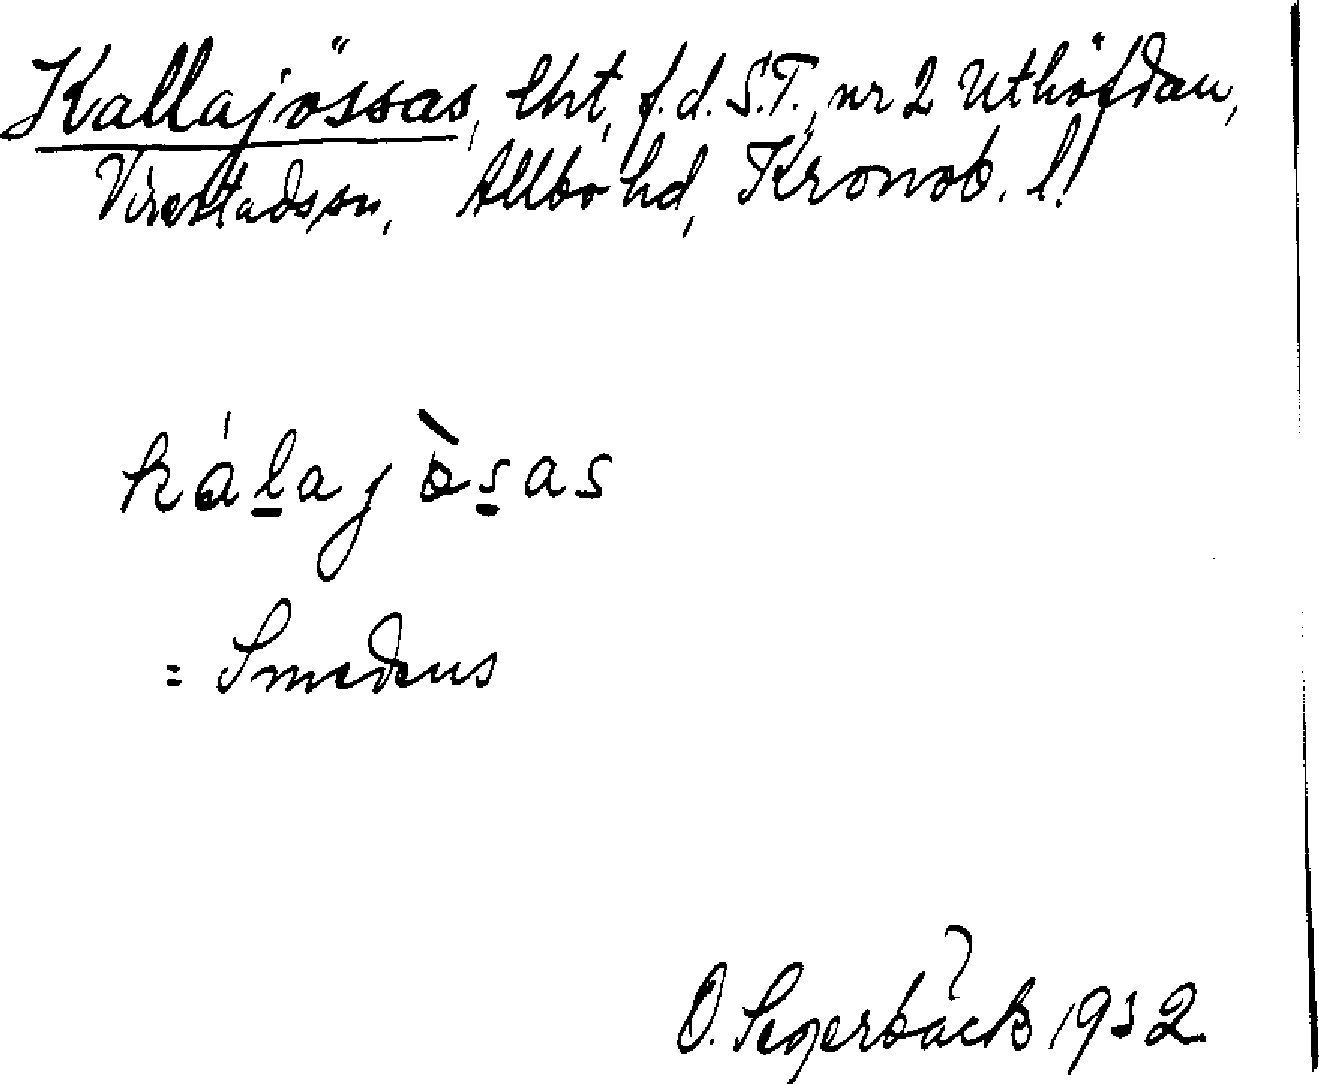 Kallajössas, lht, f.d. S.T., nr 2 Uthöfdan,
Virestads sn, Allbo hd, Kronob. l.
kálajòsas
= Smedens
O. Segerbäck 1932